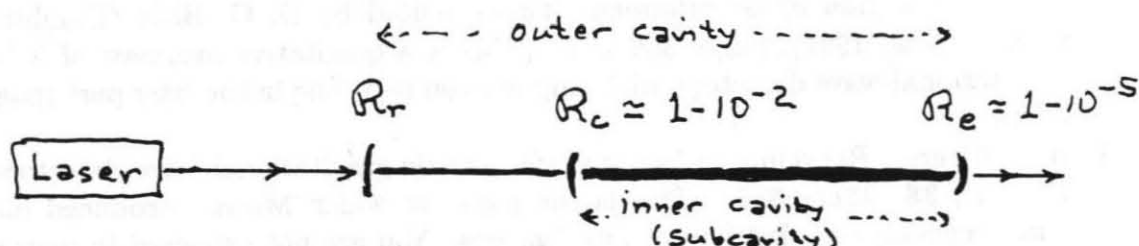 outer cavity
R_r R_c ≃ 1-10^-2 R_e ≃ 1-10^-5
Laser
inner cavity
(subcavity)